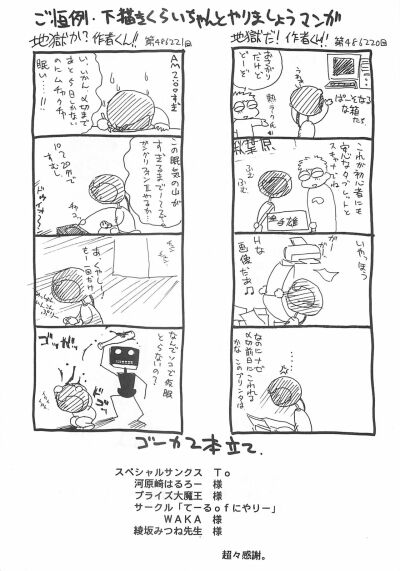 ご恒例・下描きくらいちゃんとやりましょうマンガ
地獄だ!作者くん!!
第486220回
おさがり
だけど
どーぞ
ぱーそなる
な箱だ。
秋葉原
これが初心者にも
安心なタブレットと
スキャナだね
ふむ
ふむ
いやっほう
ガー
Hな
画像だぁ♪
なのにナゼ
〆切前日にこわれる
かな このプリンタは
地獄か?作者くん!!
第486221回
AM2:00すぎ
いかんいかん〆切まで
あと5日しかない
のにムチャクチャ
眠い…!!
この眠気の山が
すぎるまでTVみてる
10~20分で
すむし
もー
一回だけ!
ゴッ
ガッ
ドゴッ
なんでソコで仮眠
とらないの?
ゴーカ2本立て.
スペシャルサンクス To
河原崎はるろー 様
プライズ大魔王 様
サークル「てーるofにやりー」
WAKA 様
綾坂みつね先生 様
超々感謝。